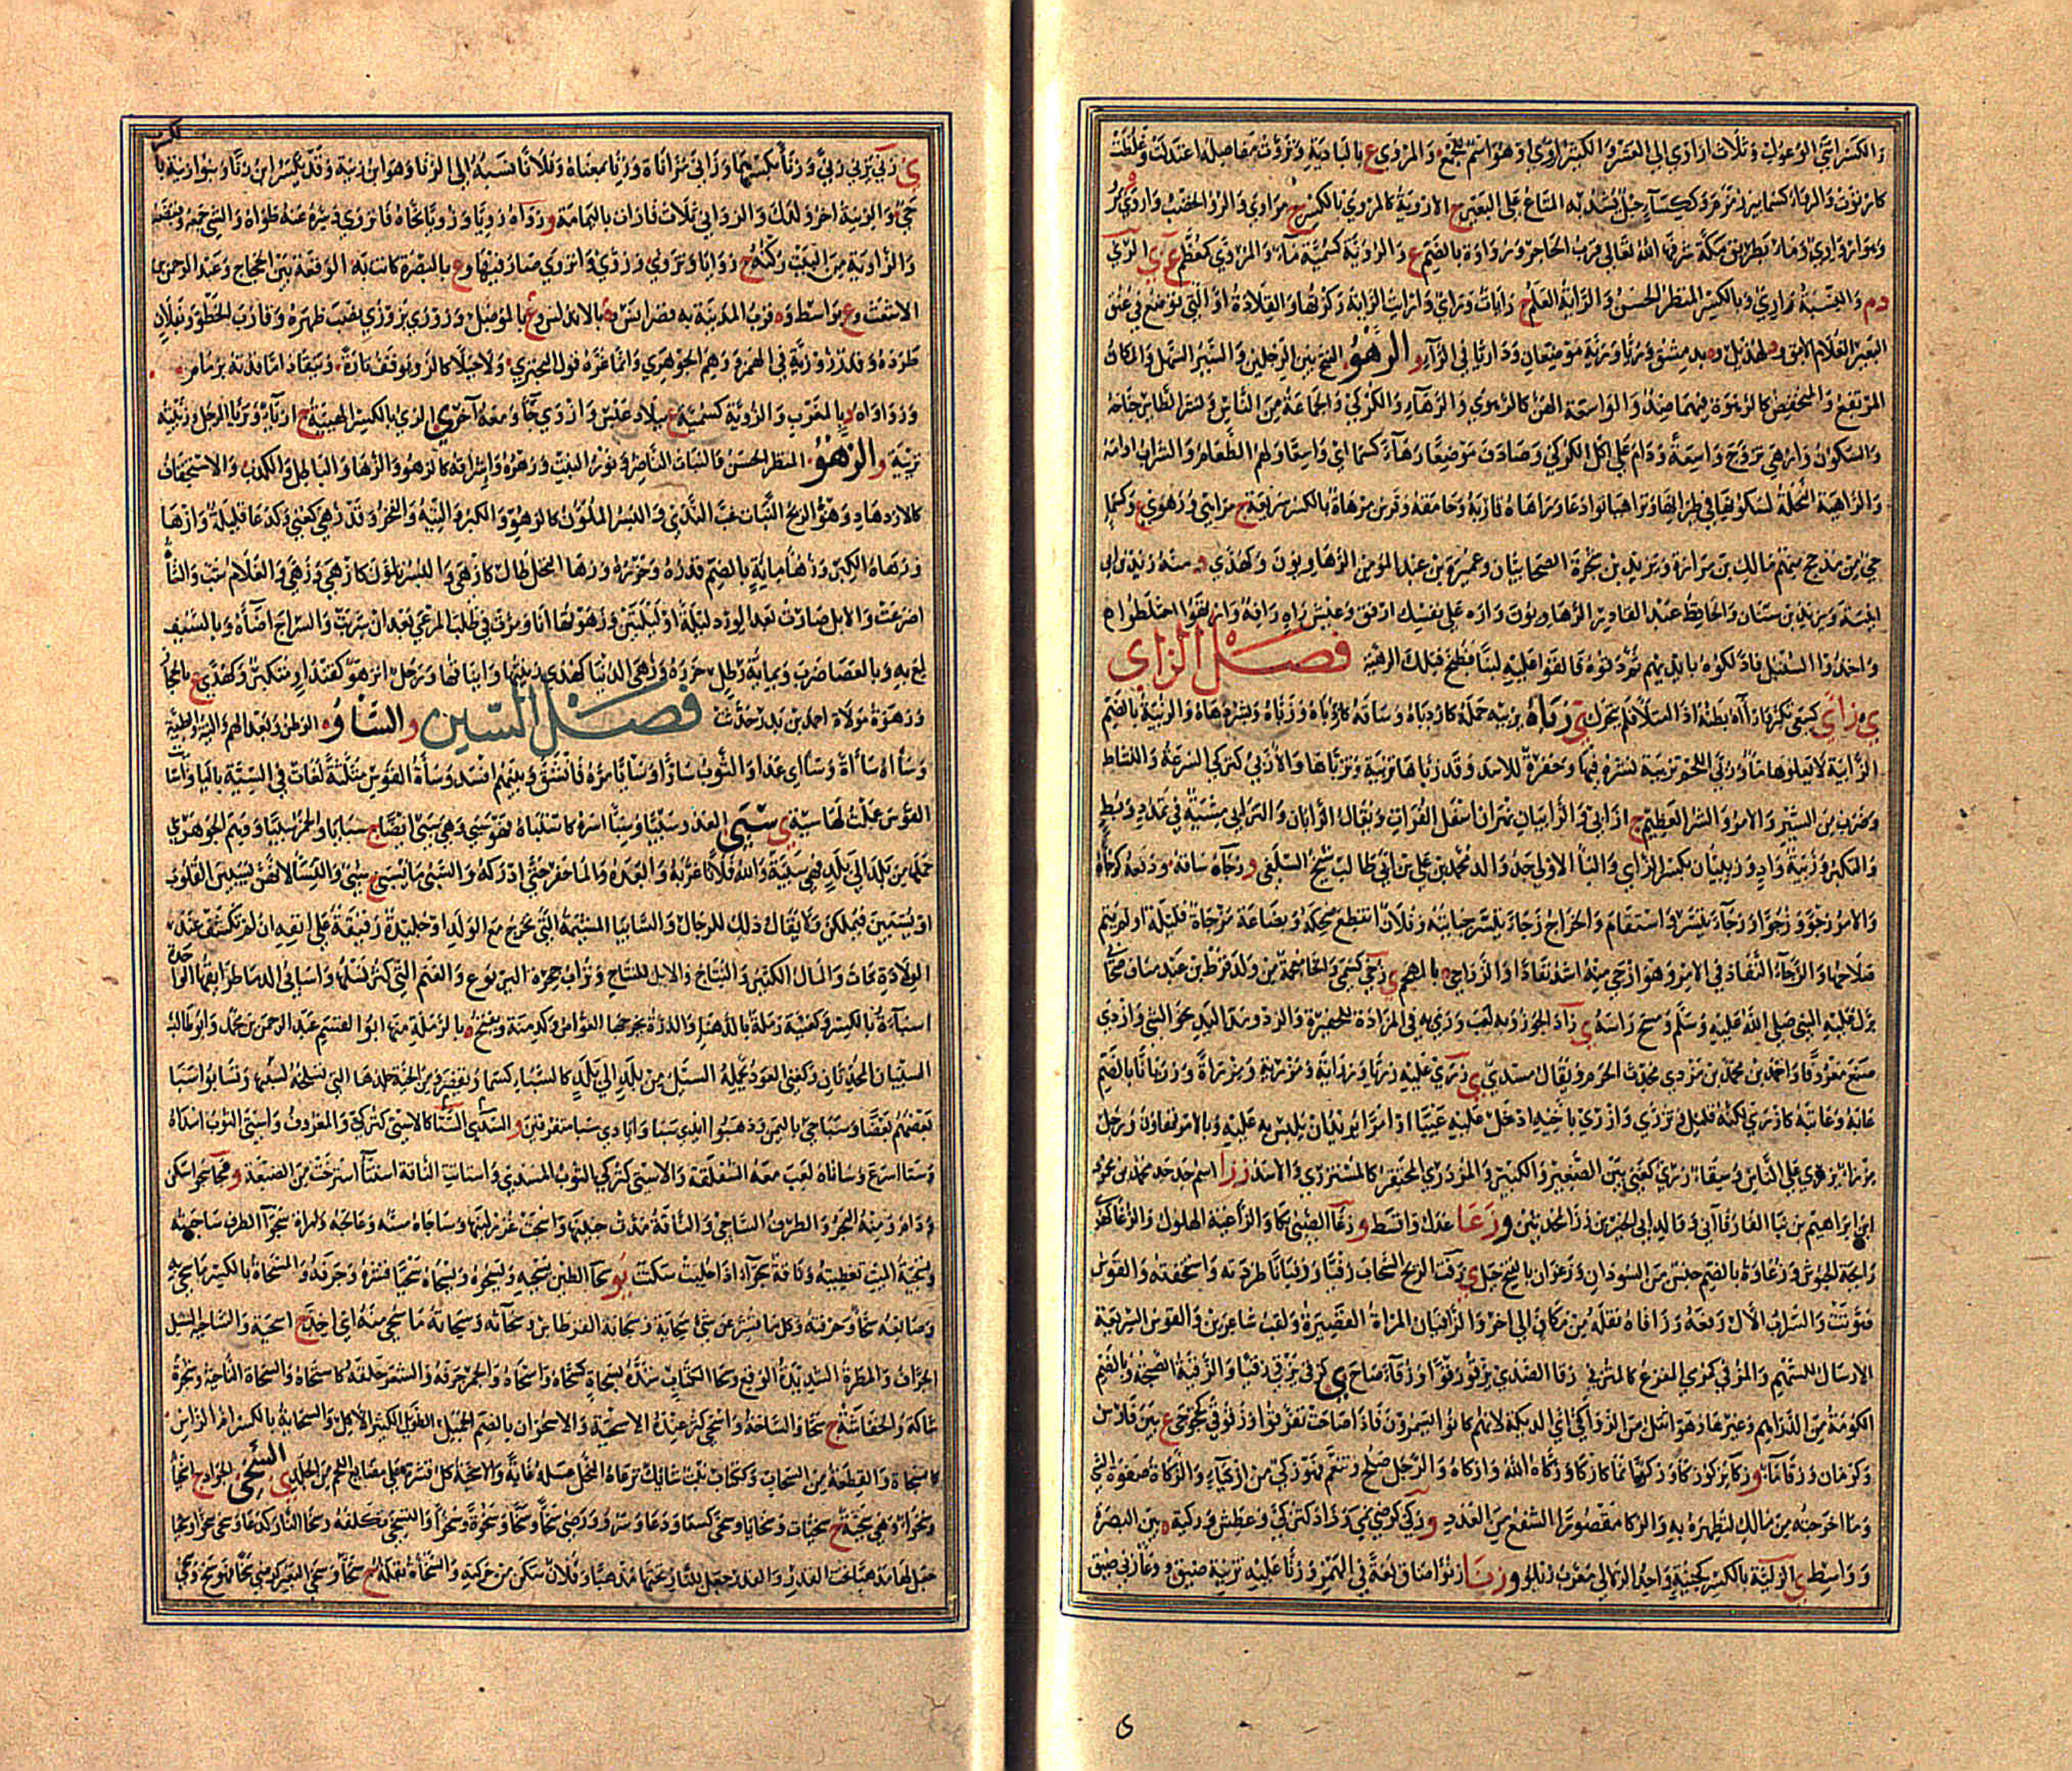 والكسر انثى الوعول وثلاث اراوي الى العشر والكثير اروى او هو اسم للجمع والمروى ع بالبادية وتروت مفاصله اعتدلت وغلظت
كارتوت والرواء ككساء حبل يشد به المتاع على البعير ج الاروية كالمروى بالكسر ج مراوي والرو الخصب واروى
وبئر وادي وماء بطريق مكة شرفها الله تعالى قرب الحاجر ورواوة بالضم ع والروية كسمية ماء والمروى كمعظم ع ي الري
د م والنسبة رازي وبالكسر المنظر الحسن والراية العلم ج رايات وراي واراب الراية ركزتها والقلادة او التي توضع في عنق
الغلام الابق و د لهذيل و ة بدمشق وريا ورية موضعان وداريا في الراء و الرهو الفتح بين الرجلين والسير السهل والمكان
المرتفع والمنخفض كالرهوة فيهما ضد والواسعة الهن كالرهوى والرهاء والكركي والجماعة من الناس ونشر الطاير جناحه
والسكون وارهى تزوج واسعة ودام على اكل الكركي وصادف موضعا رهاء كسماء اي واسعا ولهم الطعام والشراب ادامه
والراهية النحلة لسكونها في طيرانها وتراهيا توادعا وراهاه قاربه وحامقه وفرس مرهاة بالكسر سريعة ج مراهي ورهوى ع وكسماء
حي من مذحج منهم مالك بن مرارة ويزيد بن شجرة الصحابيان وعميرة بن عبد المؤمن الرهاويون وكهدى د منه زيد بن ابي
انيسة ويزيد بن سنان والحافظ عبد القادر الرهاويون واره على نفسك ارفق وعيش راه رافه وارتهوا اختلطوا
واخذوا السنبل فدلكوه بايديهم ثم دقوه فالقوا عليه لبنا فطبخ فتلك الرهية فصل الزاي
ي زاى كسعى تكبر وازآه بطنه اذا امتلا فلم يتحرك ي زباه يزبيه حمله كازدباه وساقه كازباه وزباه وبشر دهاه والزبية بالضم
الرابية لا يعلوها ماء وزبى اللحم تزبية نشره فيها وحفرة للاسد وقد زباها تزبية وتزباها والازبي كتركي السرعة والنشاط
وضرب من السير والامر والشر العظيم ج ازابي والزابيان نهران اسفل الفرات ويقال الزابان والتزابي مشية في تمدد وبطء
والتكبر وزبية واد وزبيان بكسر الزاي والبا الاولى جد والد محمد بن علي بن ابي طالب شيخ السلفي و زجاه ساقه ودفعه كزجاه
والامر زجوا وزجوا وزجاء تيسر واستقام والخراج زجاء تيسر جبايته وفلان انقطع ضحكه وبضاعة مزجاة قليلة او لم يتم
صلاحها والزجاء النفاذ في الامر وهو ازجى منه اشد نفاذا
نزل عليه النبي صلى الله عليه وسلم ومسح راسه ي زدا الجوز وبه لعب ورمى به في المزداة للحفيرة والزدو مد اليد نحو الشي وازدى
صنع معروفا واحمد بن محمد بن مزدى محدث الحرم ويقال مسدى ي زرى عليه زريا وزراية ومزرية ومزراة وزريانا بالضم
عابه وعاتبه كازرى لكنه قليل وتزرى وازرى باخيه ادخل عليه عيبا او امرا يريد ان يلبس به عليه وبالامر تهاون ورجل
مزراء يزري على الناس وسقاء زري كغني بين الصغير والكبير والمزدري المحتقر كالمستزري والاسد زرا اسم جد جد محمد بن محمود
ابن ابراهيم بن نبا الفارقاني و زعا عدل واقسط و زغا الصبي بكا والزاغية الهلوك والزغا كالهدى
رائحة الحبوش وزغاوة بالضم جنس من السودان وزغوان بالفتح جبل ي زفت الريح السحاب زفيا وزفيانا طردته واستخفته والقوس
صوتت والسراب الآل رفعه وزافاه نقله من مكان الى اخر والزفيان المراة القصيرة ولقب شاعرين والقوس السريعة
الارسال للسهم والمزفى كمرمي المفزع كالمتزفى زقا الصدى يزقو زقوا وزقاء صاح ي كزقى يزقي زقيا والزقية الصيحة وبالضم
الكومة من الدراهم وغيرها وهو اثقل من الزواقي اي الديكة لانهم كانوا يسمرون فاذا صاحت تفرقوا وزقوقى كخجوجى ع بين فارس
وكرمان وزقا ماء و زكا يزكو زكاء وزكوا نما كازكى وزكاه الله وازكاه والرجل صلح وتنعم فهو زكي من ازكياء والزكاة صفوة الشي
وما اخرجته من مالك لتطهره به والزكا مقصورا الشفع من العدد و زكي كرضي نمى وزاد كتزكى وعطش وزكية ة بين البصرة
وواسط ي الزلية بالكسر كجنية واحد الزلالي معرب زيلو و زنا زنوا ضاق لغة في الهمز وزنا عليه تزنية ضيق ووعاء زني ضيق
ي زنى يزني زنى وزناء بكسرهما وزانى مزاناة وزنى بمعناه وفلانا نسبه الى الزنا وهو ابن زنية وقد يكسر ابن زنا وبنو زنية
حي والزنية اخر ولدك والزواني ثلاث قارات باليمامة و زواه زيا وزويا نحاه فانزوى وسره عنه طواه والشي جمعه وقبضه
والزاوية من البيت ركنه ج زوايا وتزوى وزوى وانزوى صار فيها و ع بالبصرة كانت به الوقعة بين الحجاج وعبد الرحمن بن
الاشعث و ع بواسط و ة قرب المدينة به قصر انس و ة بالاندلس و ع بالموصل وزوزى يزوزي نصب ظهره وقارب الخطو وبفلان
طرده وقدر زؤزئة في الهمز ووهم الجوهري وانما غره قول الحبزي
وزوواوة د بالمغرب والزوية كسمية ع ببلاد عبس وازوى جاء ومعه آخر ي الزي بالكسر الهيئة ج ازياء وتزيا الرجل وزييته
تزية و الزهو المنظر الحسن والنبات الناضر ونور النبت وزهره واشراقه كالزهو والزها والباطل والكذب والاستخفاف
كالازدهاء وهز الريح النبات غب الندى والبسر الملون كالزهو والكبر والتيه والفخر وقد زهي كعني وكدعا قليلة وازهى
وزهاه الكبر وزهاء مائة بالضم قدره وحزره وزها النخل طال كازهى والبسر تلون كازهى وزهى والغلام شب والشاة
اضرعت والابل صارت بعد الورد ليلة او ليلتين وزهوتها انا ومرت في طلب المرعى بعد ان شربت والسراج اضآه وبالسيف
لمع به وبالعصا ضرب وبمائة رطل حزره وزهى الدنيا كهدى زينتها وايناقها ورجل انزهو كقندأو متكبر وكهدى ع بالحجاز
وزهوة مولاة احمد بن بدر حدثت فصل السين و الساو الوطن وبعد الهم والنية والطية
وسأاه ساة وساي عدا والثوب ساوا وسايا مزه فانشق وبينهم افسد وساة القوس مثلثة لغات في السية بالياء واسا
القوس عملت لها سية ي سبى العدو سبيا وسباء اسره كاستباه فهو سبي وهي سبي ايضا ج سبايا والخمر سبيا ووهم الجوهري
حملها من بلد الى بلد فهي سبية والله فلانا غربه وابعده والماء حفر حتى ادركه والسبي ما يسبى ج سبي والنساء لانهن يسبين القلوب
او يسبين فيملكن ولا يقال ذلك للرجال والسابيا المشيمة التي تخرج مع الولد او جليدة رقيقة على انفه ان لم تكشف عند
الولادة مات والمال الكثير والنتاج والابل للنتاج وتراب جحرة اليربوع والغنم التي كثر نسلها واسابي الدماء طرايقها الواحدة
اسباءة بالكسر وكغنية رملة بالدهناء والدرة يخرجها الغواص وكدمية ويفتح ة بالرملة منها ابو القسم عبد الرحمن بن محمد وابو طالب
السبييان المحدثان وكغني العود يحمله السيل من بلد الى بلد كالسباء ومن الحية جلدها التي تسلخه وتسابوا سبى
بعضهم بعضا وسبا حي باليمن وذهبوا ايدي سبا وايادي سبا متفرقين و السدى الستا كالاستي كتركي والمعروف واستى الثوب اسداه
وستا اسرع وساتاه لعب معه الشفلقة والاستي كتركي الثوب المسدى واستاتت الناقة استيتاء استرخت من الضبعة و سجا سجوا سكن
ودام ومنه البحر والطرف الساجي والناقة مدت حنينها واسجت غزر لبنها وساجاه مسه وعالجه وامراة سجوآ الطرف ساجيته
وتسجية الميت تغطيته وناقة سجوآء اذا حلبت سكنت يو سحا الطين يسحيه ويسحوه ويسحاه سحيا قشره وجرفه والمسحاة بالكسر ما سحي به
وصانعه سحاء وحرفته وكل ما قشر عن شي سحاية وسحاية القرطاس وسحاءته وسحاته ما سحي منه اي اخذ ج اسحية والساحية السيل
الجراف والمطرة الشديدة الوقع وسحا الكتاب شده بسحاة كسحاه واسحاه والجمر جرفه والشعر حلقه كاستحاه والسحاة الناحية وشجرة
شاكة والخفاشة ج سحا والساحة واسحى كثر عنده الاسحية والاسحوان بالضم الجميل الطويل الكثير الاكل والسحاية بالكسر ام الراس
كالسحاة والقطعة من السحاب وككتاب نبت شايك ترعاه النحل عسله غاية والاسحية كل قشرة على مضايغ اللحم من الجلد ي السخي الجواد ج اسخيا
وسخواء وهي سخية ج سخيات وسخايا وسخى كسعى ودعا وسرو ورضي سخاء وسخا وسخوة وسخوا والتسخي تكلفه وسخا النار كدعا وسعى سخوا وسخيا
جعل لها مذهبا تحت القدر والقدر جعل للنار تحتها مذهبا وفلان سكن من حركته والسخاة بقلة ج سخا وسخي البعير كرضي سخا فهو سخ وسخي